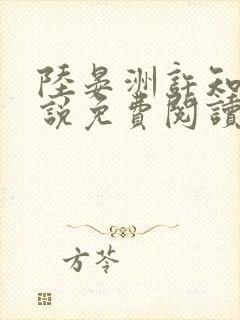 陸晏洲許知
說免費閱讀
方苓